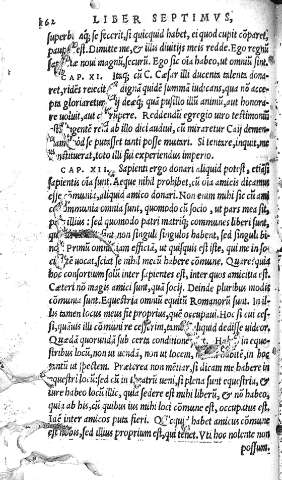 862 LIBER SEPTIMVS,
superb aq́; se fecerit, si quicquid habet, ei quod cupit cōparet,
paup est. Dimitte me, & illas diuitijs meis redde. Ego regnū
sap tæ noui magnū, securū. Ego sic oīa habeo, ut omniū sint.
CAP. XI. Itaq́; cū C. Cæsar illi ducenta talenta dona-
ret, ridēs reiecit digna quidē summa iudicans, qua nō acce-
pta gloriaretur ij deæq́; quā pusillo illi animū, aut honora-
re uoluit, aut c rupere. Reddendū egregio uiro testimoniū
est. gentē rē ab illo dici audiui, cū miraretur Caij demen-
od se putasset tanti posse mutari. Si tentare, inquit, me
nstituerat, toto illi fui experiendus imperio.
CAP. XII. Sapienti ergo donari aliquid potest, etiāsi
sapientis oīa sunt. Aeque nihil prohibet, cū oīa amicis dicamus
esse cōmunia, aliquid amico donari. Non enim mihi sic cū ami
cōmunia omnia sunt, quomodo cū socio, ut pars mea sit,
illius: sed quomodo patri matriq́; communes liberi sunt,
non singuli singulos habent, sed singuli bi-
nos. Primū omniū iam efficiā, ut quisquis est iste, qui me in so-
cie tē uocat, sciat se nihil mecū habere cōmune. Quare: quia
hoc consortium solū inter sapientes est, inter quos amicitia est.
Cæteri nō magis amici sunt, quā socij. Deinde pluribus modis
cōmunia sunt. Equestria omniū equitū Romanorū sunt. In il-
lis tamen locus meus fit proprius, quē occupaui. Hoc si cui ces-
si, quāuis illi cōmuni re cesserim, tamē aliquid dedisse uideor.
Quædā quorundā sub certa conditione Ha in eque-
stribus locū, non ut uendā, non ut locem, habitē, in hoc
tantū ut spectem. Præterea non mētiar, si dicam me habere in
equestri locū: sed cū in theatrū ueni, si plena sunt equestria, &
iure habeo locū illic, quia sedere est mihi liberū, & nō habeo,
quia ab his, cū quibus ius mihi loci cōmune est, occupatus est.
Idē inter amicos puta fieri. Quicqui habet amicus cōmune
est nobis, sed illius proprium est, qui tenet. Vti hoc nolente non
possum.